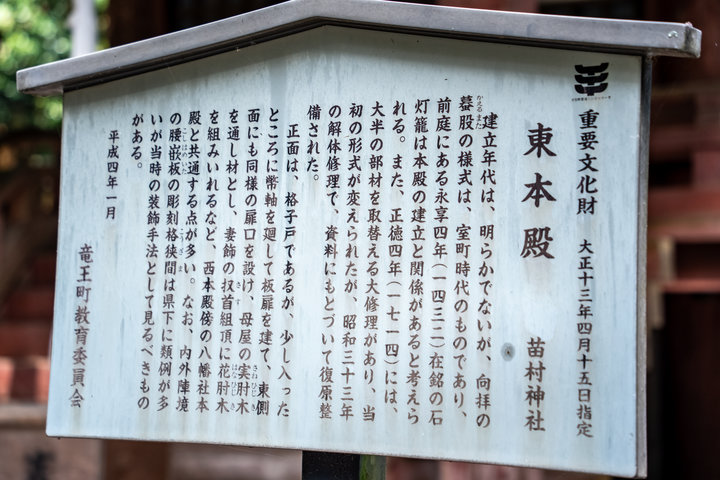 重要文化財 大正十三年四月十五日指定
東本殿 苗村神社
建立年代は、明らかでないが、向拝の
蟇股の様式は、室町時代のものであり、
かえるまた
前庭にある永享四年(一四三二)在銘の石
灯籠は本殿の建立と関係があると考えら
れる。また、正徳四年(一七一四)には、
大半の部材を取替える大修理があり、当
初の形式が変えられたが、昭和三十三年
の解体修理で、資料にもとづいて復原整
備された。
正面は、格子戸であるが、少し入った
ところに幣軸を廻して板扉を建て、東側
面にも同様の扉口を設け、母屋の実肘木
さねひじき
を通し材とし、妻飾の扠首組頂に花肘木
さす
はなひじき
を組みいれるなど、西本殿傍の八幡社本
殿と共通する点が多い。なお、内外陣境
の腰嵌板の彫刻格狭間は県下に類例が多
こしはめいた
こうざま
いが当時の装飾手法として見るべきもの
がある。
平成四年一月
竜王町教育委員会